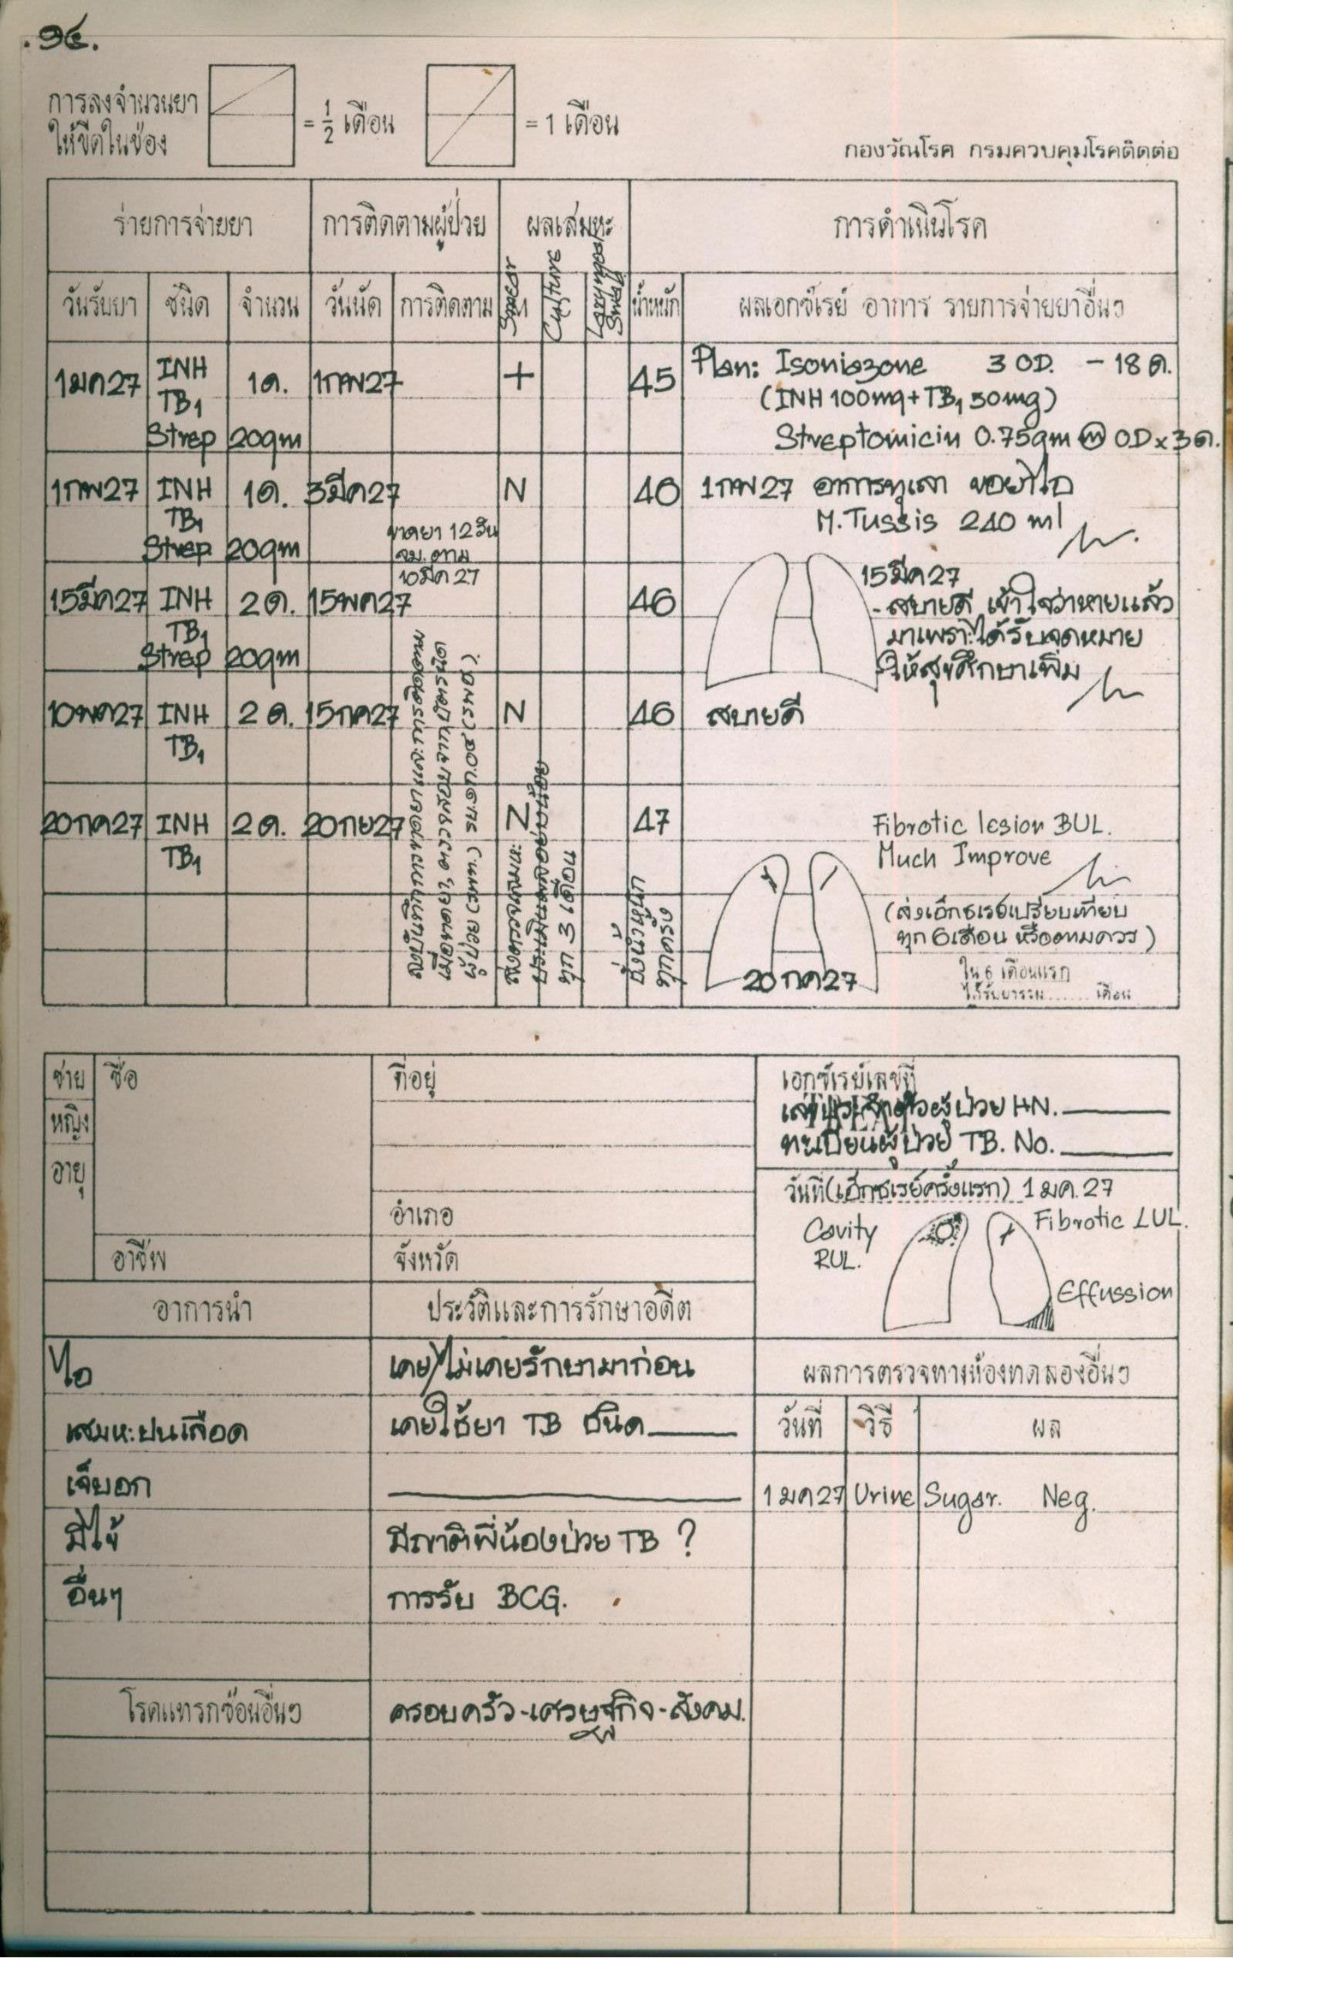 .๑๔.
การลงจำนวนยา
ให้ขีดในช่อง
= 1/2 เดือน
= 1 เดือน
กองวัณโรค กรมควบคุมโรคติดต่อ
ร่ายการจ่ายยา การติดตามผู้ป่วย ผลเสมหะ การดำเนินโรค
วันรับยา ชนิด จำนวน วันนัด การติดตาม Smear Culture น้ำหนัก ผลเอกซ์เรย์ อาการ รายการจ่ายยาอื่นๆ
1มค27 INH 1ด. 1กพ27 + 45 Plan: Isoniazone 3 OD. - 18 ด.
TB1 (INH 100mg + TB1 50mg)
Strep 20gm Streptomicin 0.75gm OD x 3ด.
1กพ27 INH 1ด. 3มีค27 N 46 1กพ27 อาการทุเลา ขอยาไอ
TB1 M.Tussis 240 ml
Strep 20gm ขาดยา 12 วัน
จม. ตาม
10มีค 27
15มีค27 INH 2ด. 15พค27 46 15มีค27
- สบายดี เข้าใจว่าหายแล้ว
TB1 มาเพราะได้รับจดหมาย
Strep 20gm ให้สุขศึกษาเพิ่ม
10พค27 INH 2 ด. 15กค27 N 46 สบายดี
TB1
20กค27 INH 2ด. 20กย27 N 47 Fibrotic lesion BUL.
TB1 Much Improve
(ส่งเอ็กซเรย์เปรียบเทียบ
ทุก 6 เดือน หรือตามควร)
20 กค27
ใน 6 เดือนแรก
ได้รับยารวม...... เดือน
ทุก 3 เดือน
ชั่งน้ำหนัก
ทุกครั้ง
ชาย ชื่อ ที่อยู่ เอกซ์เรย์เลขที่
หญิง
HN.
อายุ ทะเบียนผู้ป่วย TB. No.
วันที่(เอ็กซเรย์ครั้งแรก) 1 มค. 27
อำเภอ Cavity Fibrotic LUL.
อาชีพ จังหวัด RUL.
Effussion
อาการนำ ประวัติและการรักษาอดีต
ไอ เคย/ไม่เคยรักษามาก่อน ผลการตรวจทางห้องทดลองอื่นๆ
เสมหะปนเลือด เคยใช้ยา TB ชนิด วันที่ วิธี ผล
เจ็บอก 1 มค27 Urine Sugar. Neg.
มีไข้ มีญาติพี่น้องป่วย TB ?
อื่นๆ การรับ BCG.
โรคแทรกซ้อนอื่นๆ ครอบครัว-เศรษฐกิจ-สังคม.